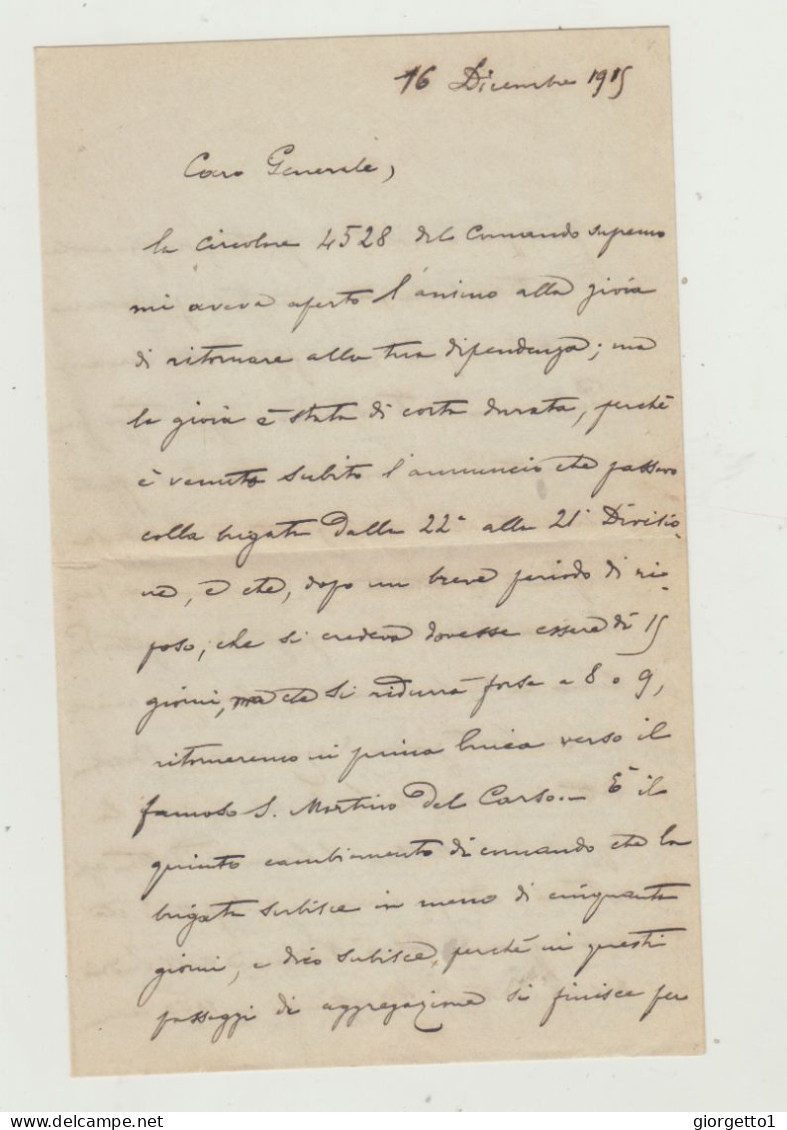 16 Dicembre 1915
Caro Generale,
la circolare 4528 del Comando supremo
mi aveva aperto l'animo alla gioia
di ritornare alla tua dipendenza; ma
la gioia è stata di corta durata, perchè
è venuto subito l'annuncio che passavo
colla brigata dalla 22ª alla 21ª Divisio-
ne, e che, dopo un breve periodo di ri-
poso, che si credeva dovesse essere di 15
giorni, ma che si ridurrà forse a 8 o 9,
ritorneremo in prima linea verso il
famoso S. Martino del Carso.- È il
quinto cambiamento di comando che la
brigata subisce in meno di cinquanta
giorni, e dico subisce, perchè in questi
passaggi di aggregazione si finisce per
delcampe.net
giorgetto1